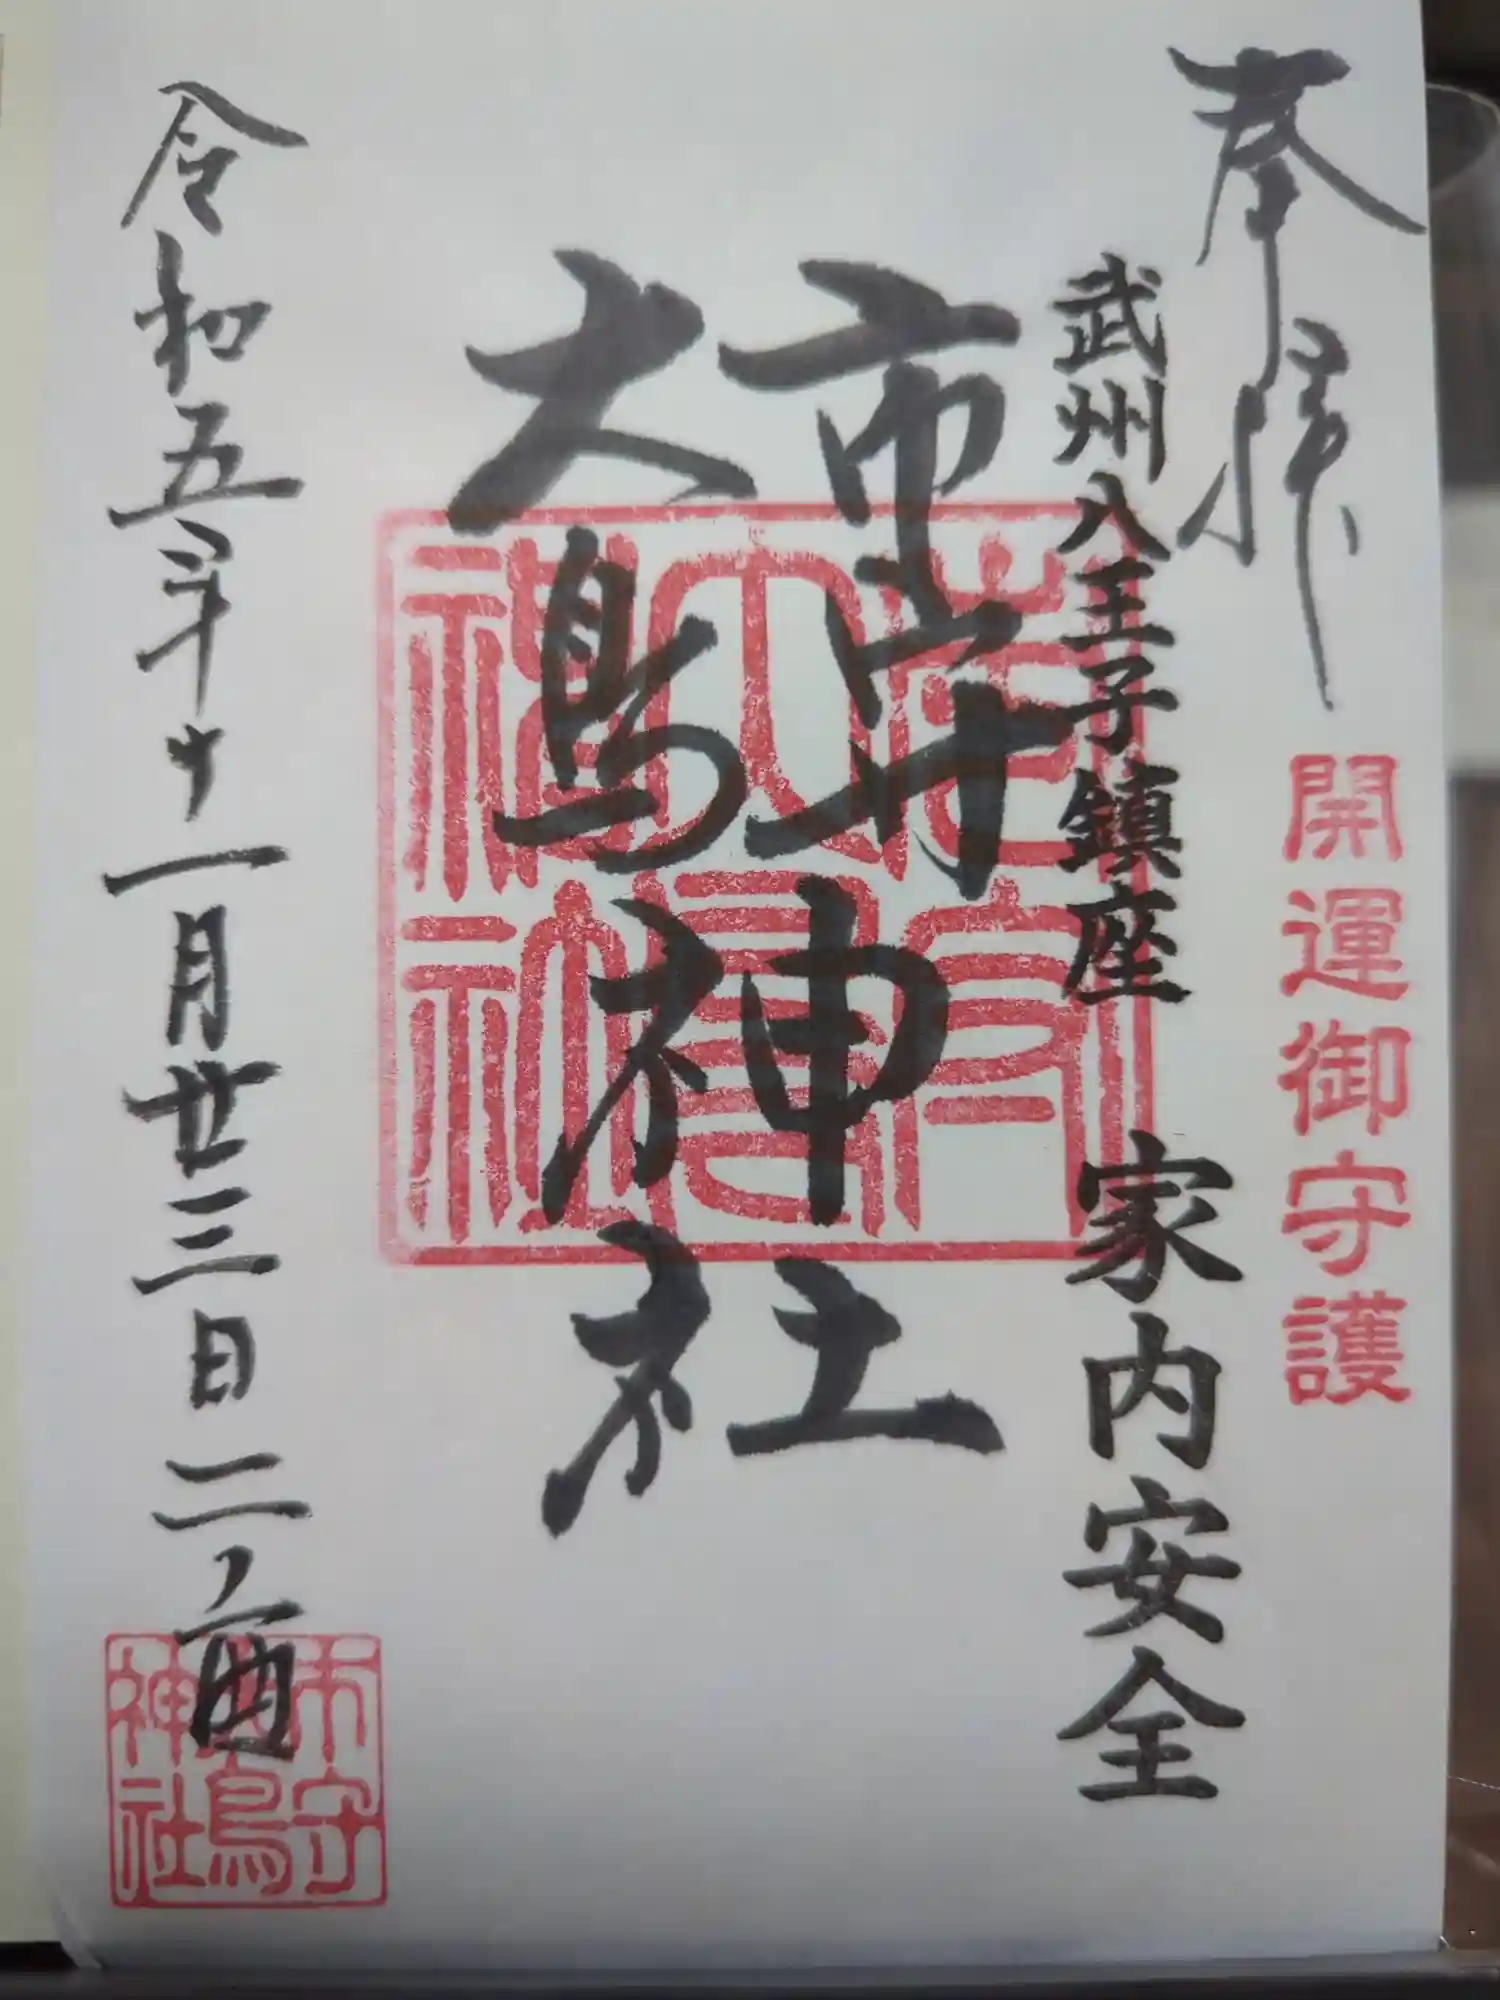 奉拝
開運御守護
武州八王子鎮座 家内安全
市守
大鳥
神社
令和五年十一月廿三日二ノ酉
市守
大鳥
神社
市守
大鳥
神社